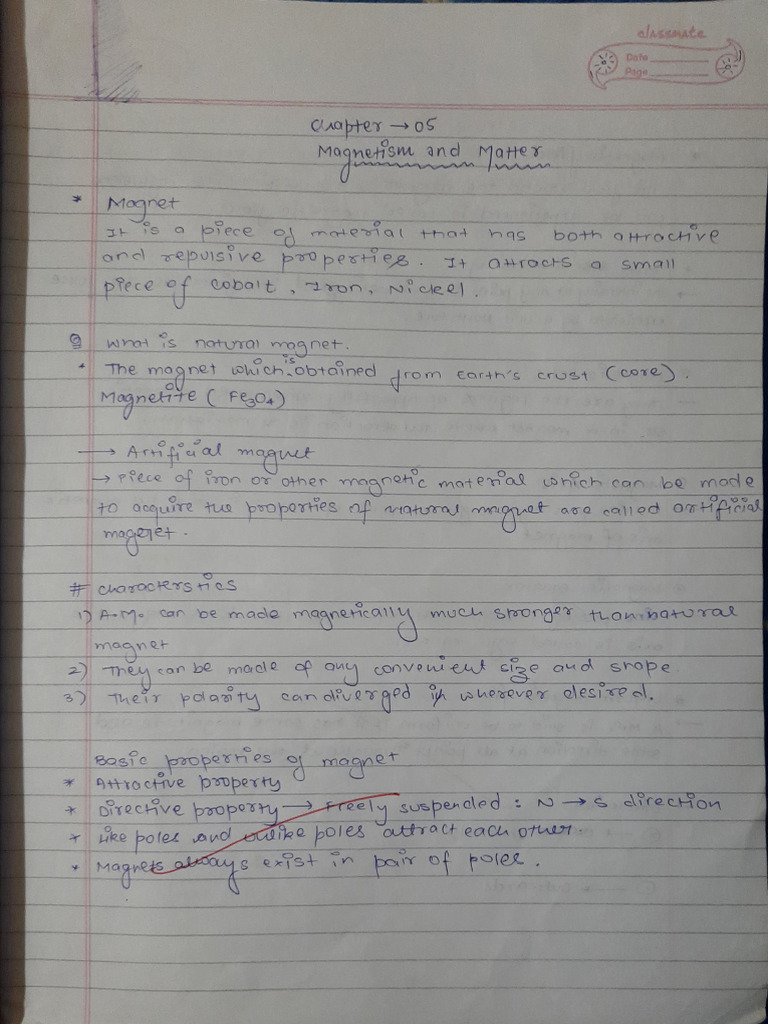 classmate
Date
Page
Chapter → 05
Magnetism and Matter
* Magnet
It is a piece of material that has both attractive
and repulsive properties. It attracts a small
piece of cobalt, Iron, Nickel.
Q What is natural magnet.
* The magnet which is obtained from earth's crust (core).
Magnetite (Fe3O4)
→ Artificial magnet
→ Piece of iron or other magnetic material which can be made
to acquire the properties of natural magnet are called artificial
magenet.
# characterstics
1) A.M. can be made magnetically much stronger than natural
magnet
2) They can be made of any convenient size and shape.
3) Their polarity can diverged in wherever desired.
Basic properties of magnet
* Attractive property
* Directive property → Freely suspended : N → S direction
* Like poles and unlike poles attract each other.
* Magnets always exist in pair of poles.